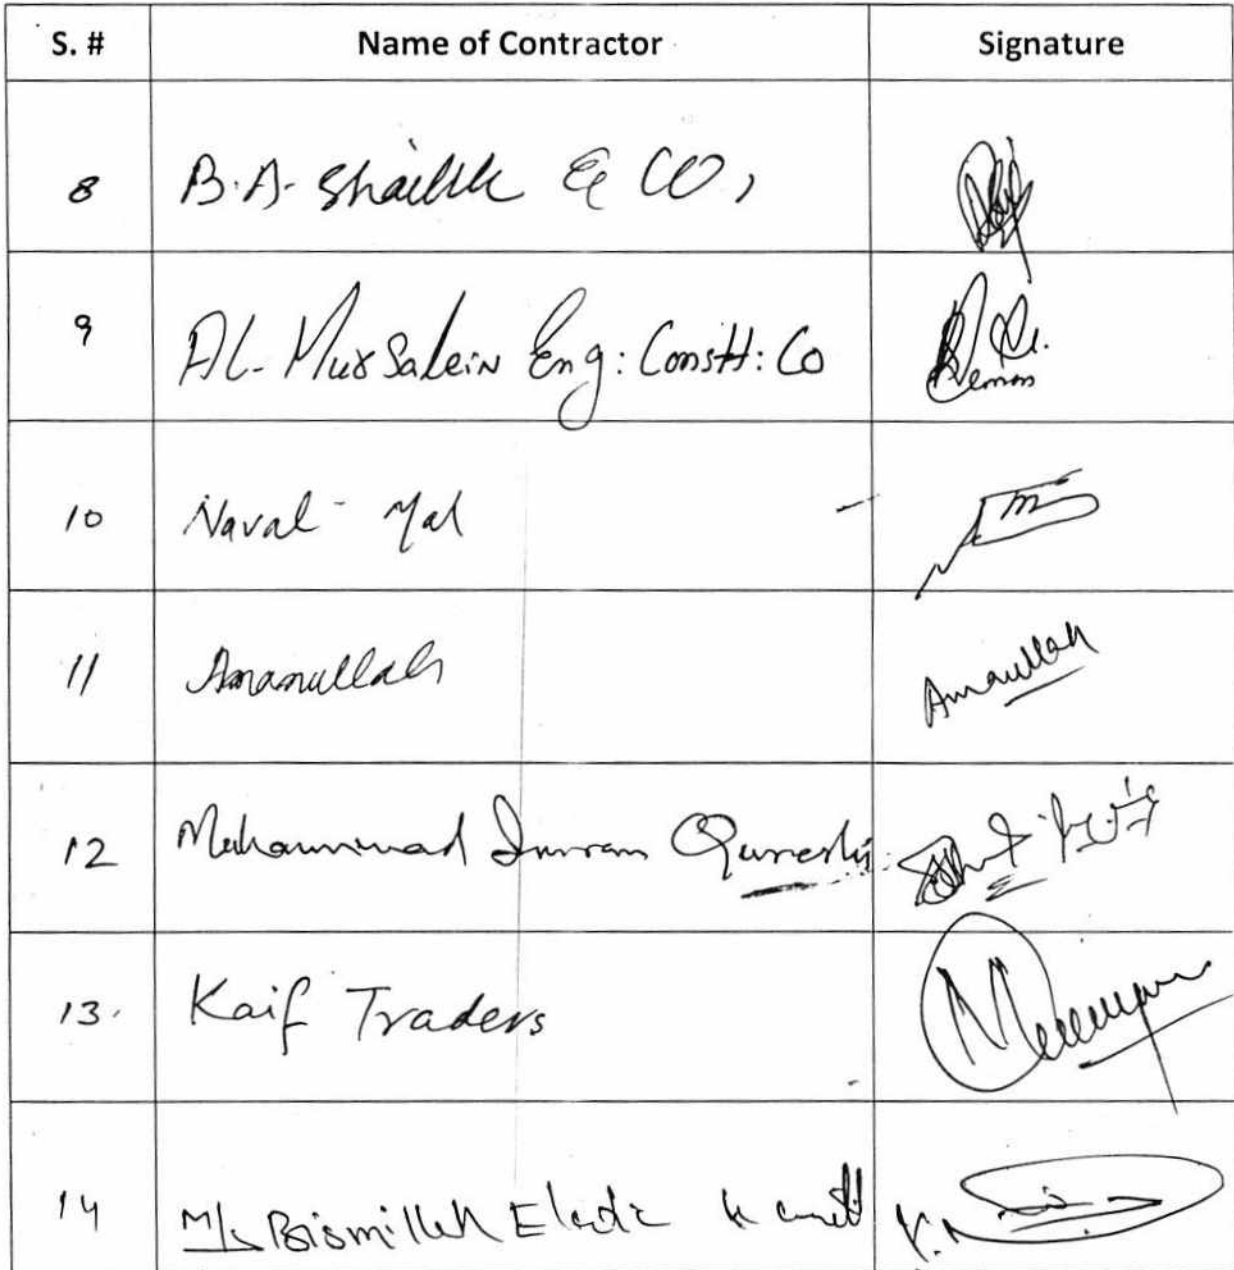 S. # Name of Contractor Signature
8 B.A. Shaikh & CO,
9 AL-Mursalein Eng: Constt: Co
10 Naval - Mal
11 Amanullah Amanullah
12 Muhammad Imran Qureshi
13. Kaif Traders
14 M/s Bismillah Electric